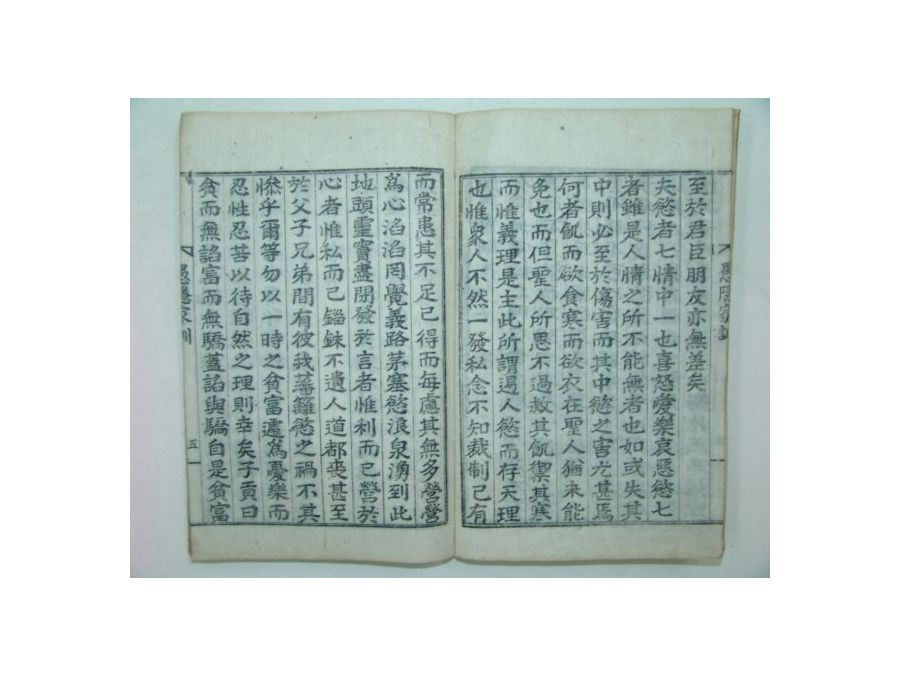 至於君臣朋友亦無差矣
夫慾者七情中一也喜怒愛樂哀惡慾七
者雖是人情之所不能無者也如或失其
中則必至於傷害而其中慾之害尤甚焉
何者飢而欲食寒而欲衣在聖人猶未能
免也而但聖人所思不過救其飢禦其寒
而惟義理是主此所謂遏人慾而存天理
也惟衆人不然一發私念不知裁制己有
而常患其不足已得而每慮其無多營營
爲心滔滔罔覺義路茅塞慾浪泉湧到此
地頭靈竇盡閉發於言者惟利而已營於
心者惟私而已錙銖不遺人道都喪甚至
於父子兄弟間有彼我藩籬慾之禍不其
慘乎爾等勿以一時之貧富遽爲憂樂而
忍性忍苦以待自然之理則幸矣子貢曰
貧而無諂富而無驕蓋諂與驕自是貧富
愚隱家訓
五